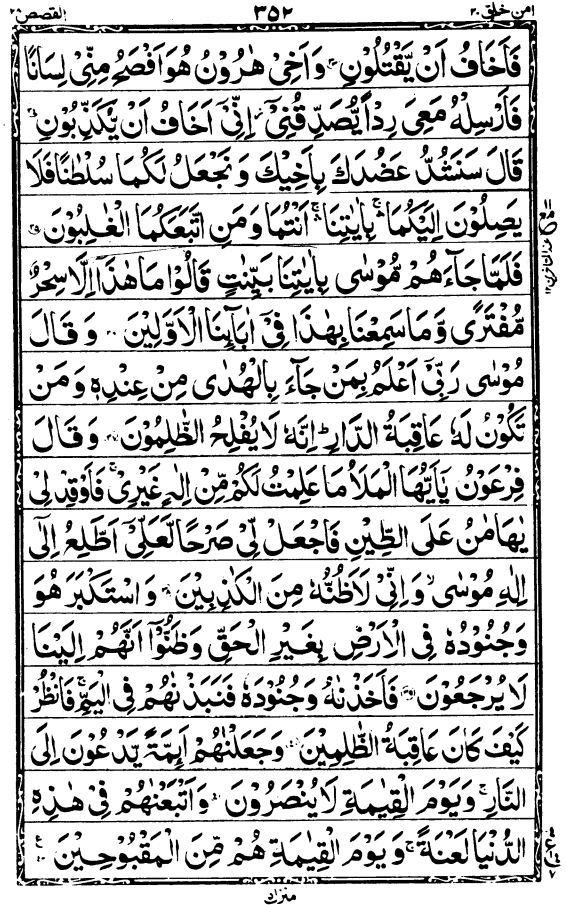 امن خلق ٢٠ ٣٥٢ القصص ٢٨
فَاَخَافُ اَنْ يَّقْتُلُوْنِ ٣٣ وَ اَخِيْ هٰرُوْنُ هُوَ اَفْصَحُ مِنِّيْ لِسَانًا
فَاَرْسِلْهُ مَعِيَ رِدْاً يُّصَدِّقُنِيْۤ ز اِنِّيْۤ اَخَافُ اَنْ يُّكَذِّبُوْنِ ٣٤
قَالَ سَنَشُدُّ عَضُدَكَ بِاَخِيْكَ وَ نَجْعَلُ لَكُمَا سُلْطٰنًا فَلَا
يَصِلُوْنَ اِلَيْكُمَا ۛۚ بِاٰيٰتِنَا ۛۚ اَنْتُمَا وَ مَنِ اتَّبَعَكُمَا الْغٰلِبُوْنَ ٣٥
فَلَمَّا جَآءَهُمْ مُّوْسٰى بِاٰيٰتِنَا بَيِّنٰتٍ قَالُوْا مَا هٰذَاۤ اِلَّا سِحْرٌ
مُّفْتَرًى وَّ مَا سَمِعْنَا بِهٰذَا فِيْۤ اٰبَآىِٕنَا الْاَوَّلِيْنَ ٣٦ وَ قَالَ
مُوْسٰى رَبِّيْۤ اَعْلَمُ بِمَنْ جَآءَ بِالْهُدٰى مِنْ عِنْدِهٖ وَ مَنْ
تَكُوْنُ لَهٗ عَاقِبَةُ الدَّارِ ؕ اِنَّهٗ لَا يُفْلِحُ الظّٰلِمُوْنَ ٣٧ وَ قَالَ
فِرْعَوْنُ يٰۤاَيُّهَا الْمَلَاُ مَا عَلِمْتُ لَكُمْ مِّنْ اِلٰهٍ غَيْرِيْ ۚ فَاَوْقِدْ لِيْ
يٰهَامٰنُ عَلَى الطِّيْنِ فَاجْعَلْ لِّيْ صَرْحًا لَّعَلِّيْۤ اَطَّلِعُ اِلٰۤى
اِلٰهِ مُوْسٰى ۙ وَ اِنِّيْ لَاَظُنُّهٗ مِنَ الْكٰذِبِيْنَ ٣٨ وَ اسْتَكْبَرَ هُوَ
وَ جُنُوْدُهٗ فِي الْاَرْضِ بِغَيْرِ الْحَقِّ وَ ظَنُّوْۤا اَنَّهُمْ اِلَيْنَا
لَا يُرْجَعُوْنَ ٣٩ فَاَخَذْنٰهُ وَ جُنُوْدَهٗ فَنَبَذْنٰهُمْ فِي الْيَمِّ ۚ فَانْظُرْ
كَيْفَ كَانَ عَاقِبَةُ الظّٰلِمِيْنَ ٤٠ وَ جَعَلْنٰهُمْ اَىِٕمَّةً يَّدْعُوْنَ اِلَى
النَّارِ ۚ وَ يَوْمَ الْقِيٰمَةِ لَا يُنْصَرُوْنَ ٤١ وَ اَتْبَعْنٰهُمْ فِيْ هٰذِهِ
الدُّنْيَا لَعْنَةً ۚ وَ يَوْمَ الْقِيٰمَةِ هُمْ مِّنَ الْمَقْبُوْحِيْنَ ٤٢